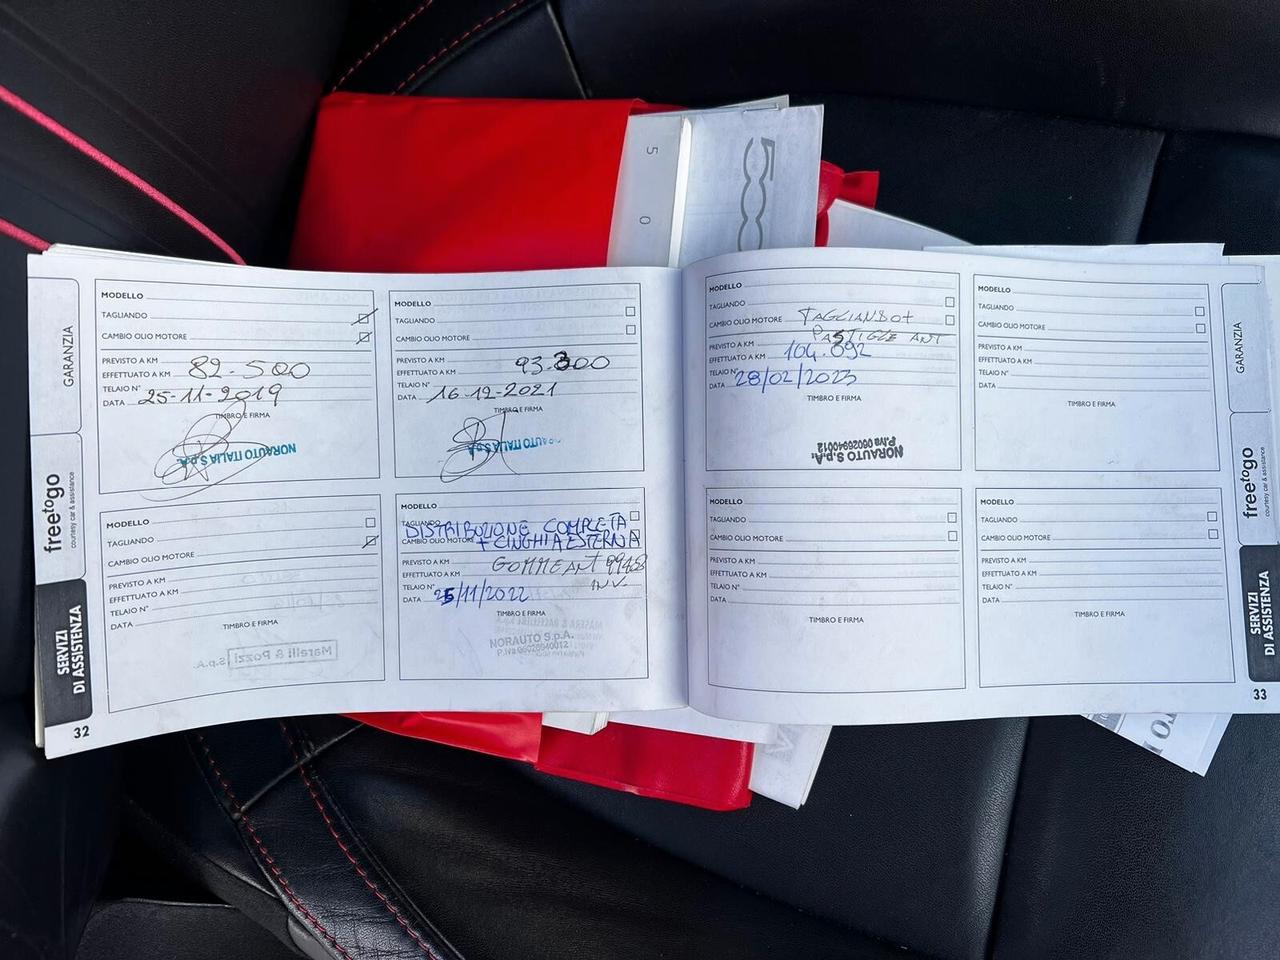 5
0
500
GARANZIA
freetogo
courtesy car & assistance
SERVIZI
DI ASSISTENZA
32
MODELLO
TAGLIANDO
CAMBIO OLIO MOTORE
PREVISTO A KM
EFFETTUATO A KM 82.500
TELAIO N°
DATA 25-11-2019
TIMBRO E FIRMA
NORAUTO ITALIA S.p.A.
MODELLO
TAGLIANDO
CAMBIO OLIO MOTORE
PREVISTO A KM
EFFETTUATO A KM 93.300
TELAIO N°
DATA 16-12-2021
TIMBRO E FIRMA
NORAUTO ITALIA S.p.A.
MODELLO
TAGLIANDO
CAMBIO OLIO MOTORE
PREVISTO A KM
EFFETTUATO A KM
TELAIO N°
DATA
TIMBRO E FIRMA
Marelli & Pozzi S.p.A.
MODELLO
TAGLIANDO
DISTRIBUZIONE COMPLETA
CAMBIO OLIO MOTORE + CINGHIA ESTERNA
PREVISTO A KM GOMME ANT 99468
EFFETTUATO A KM
TELAIO N° INV.
DATA 25/11/2022
TIMBRO E FIRMA
NORAUTO S.p.A.
P.Iva 06026940012
MODELLO
TAGLIANDO
CAMBIO OLIO MOTORE TAGLIANDO +
PASTIGLIE ANT
PREVISTO A KM
EFFETTUATO A KM 104.092
TELAIO N°
DATA 28/02/2023
TIMBRO E FIRMA
NORAUTO S.p.A.
P.Iva 06026940012
MODELLO
TAGLIANDO
CAMBIO OLIO MOTORE
PREVISTO A KM
EFFETTUATO A KM
TELAIO N°
DATA
TIMBRO E FIRMA
MODELLO
TAGLIANDO
CAMBIO OLIO MOTORE
PREVISTO A KM
EFFETTUATO A KM
TELAIO N°
DATA
TIMBRO E FIRMA
MODELLO
TAGLIANDO
CAMBIO OLIO MOTORE
PREVISTO A KM
EFFETTUATO A KM
TELAIO N°
DATA
TIMBRO E FIRMA
GARANZIA
freetogo
courtesy car & assistance
SERVIZI
DI ASSISTENZA
33